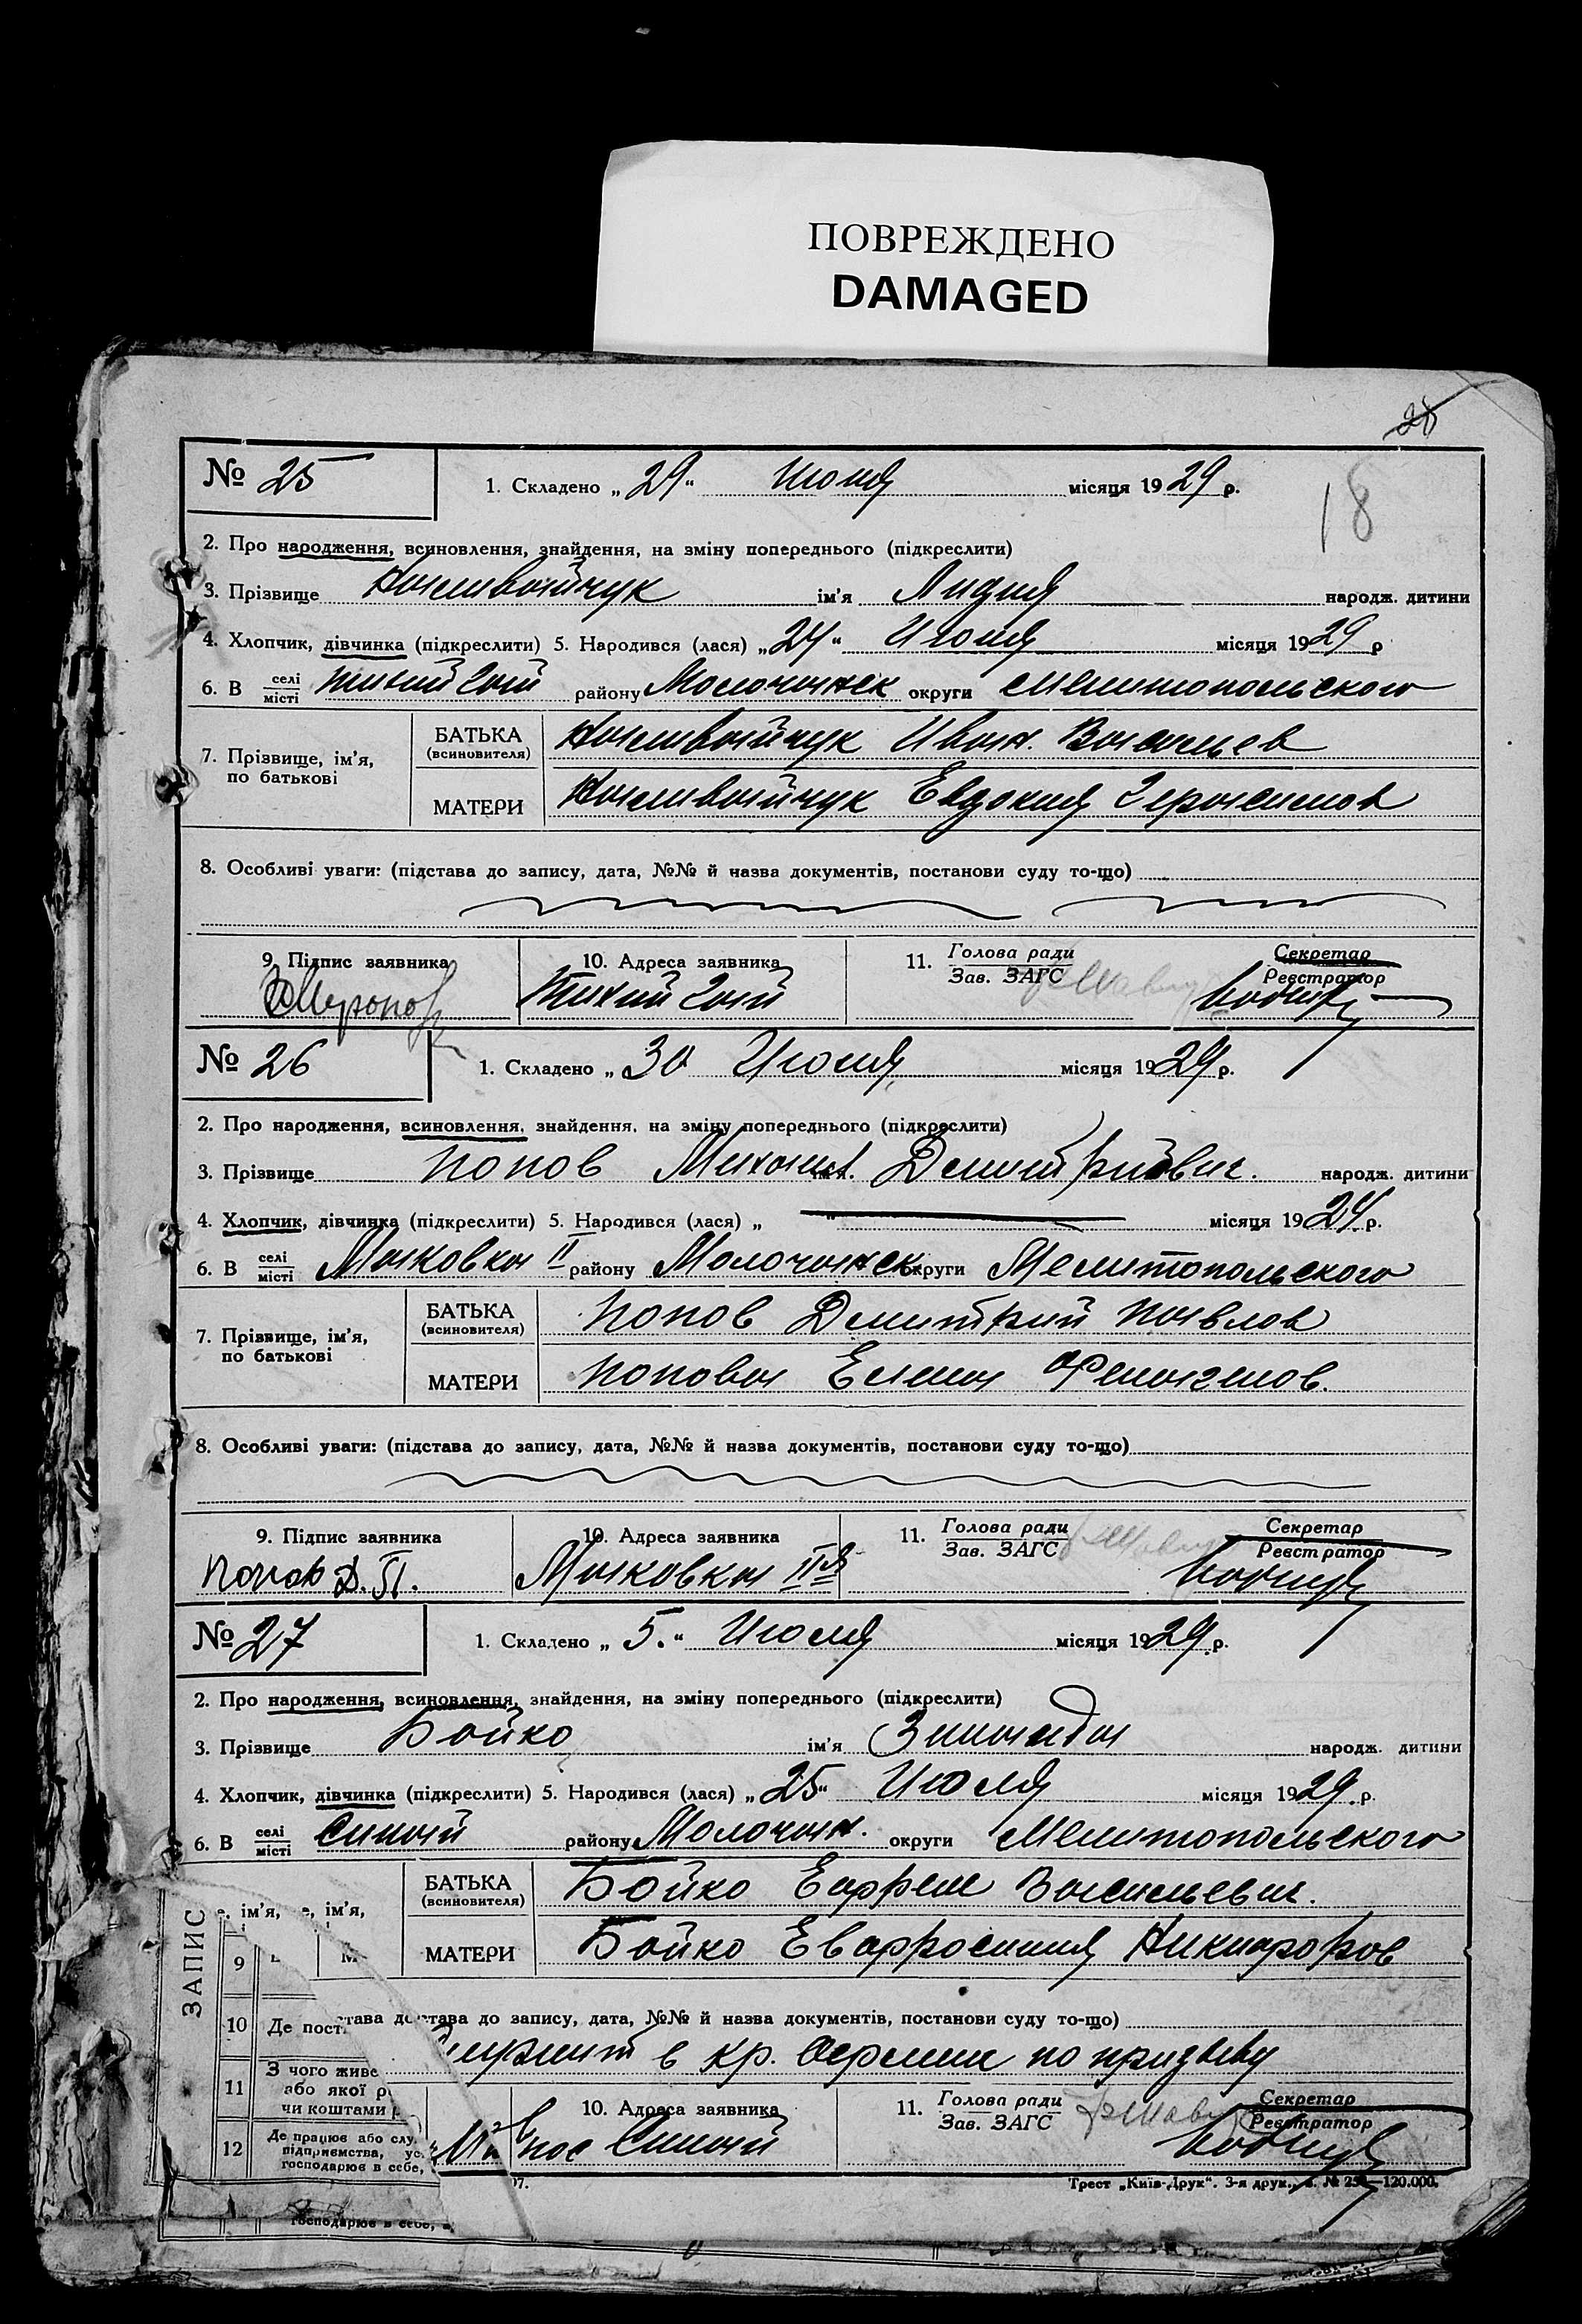 ПОВРЕЖДЕНО
DAMAGED
28
18
№ 25
1. Складено „29“ Июня місяця 1929 р.
2. Про народження, всиновлення, знайдення, на зміну попереднього (підкреслити)
3. Прізвище ім'я Лидия народж. дитини
4. Хлопчик, дівчинка (підкреслити) 5. Народився (лася) „24“ Июня місяця 1929 р
6. В селі місті Тихий Гай району Молочанск округи Мелитопольского
7. Прізвище, ім'я, по батькові
БАТЬКА (всиновителя) Иван. Васильев
МАТЕРИ Евдокия Герасимов
8. Особливі уваги: (підстава до запису, дата, №№ й назва документів, постанови суду то-що)
9. Підпис заявника 10. Адреса заявника 11. Голова ради Зав. ЗАГС Секретар Реєстратор
Тихий Гай
№ 26
1. Складено „30 Июля місяця 1929 р.
2. Про народження, всиновлення, знайдення, на зміну попереднього (підкреслити)
3. Прізвище Попов Михаил. Дмитриевич. народж. дитини
4. Хлопчик, дівчинка (підкреслити) 5. Народився (лася) „ “ місяця 1924 р.
6. В селі місті Маковка II району Молочанск округи Мелитопольского
7. Прізвище, ім'я, по батькові
БАТЬКА (всиновителя) Попов Дмитрий Павлов
МАТЕРИ Попова Елена
8. Особливі уваги: (підстава до запису, дата, №№ й назва документів, постанови суду то-що)
9. Підпис заявника 10. Адреса заявника 11. Голова ради Зав. ЗАГС Секретар Реєстратор
Попов Д. П. Маковка IIя
№ 27
1. Складено „5.“ Июля місяця 1929 р.
2. Про народження, всиновлення, знайдення, на зміну попереднього (підкреслити)
3. Прізвище Бойко ім'я Зинаида народж. дитини
4. Хлопчик, дівчинка (підкреслити) 5. Народився (лася) „25“ Июля місяця 1929 р.
6. В селі місті Синай району Молочан. округи Мелитопольского
е, ім'я, е, ім'я,
БАТЬКА (всиновителя) Бойко Ефрем Васильевич.
МАТЕРИ Бойко Евфросиния Никифоров
ЗАПИС
9
10 Де пост
тава до става до запису, дата, №№ й назва документів, постанови суду то-що)
служит в кр. Армии по призыву
11 З чого живе
або якої р
чи коштами
10. Адреса заявника 11. Голова ради Зав. ЗАГС Секретар Реєстратор
12 Де працює або слу
підприємства, ус
господарює в себе,
пос Синай
07.
Трест „Київ-Друк“. 3-я друк., 120.000.
господарює в себе,